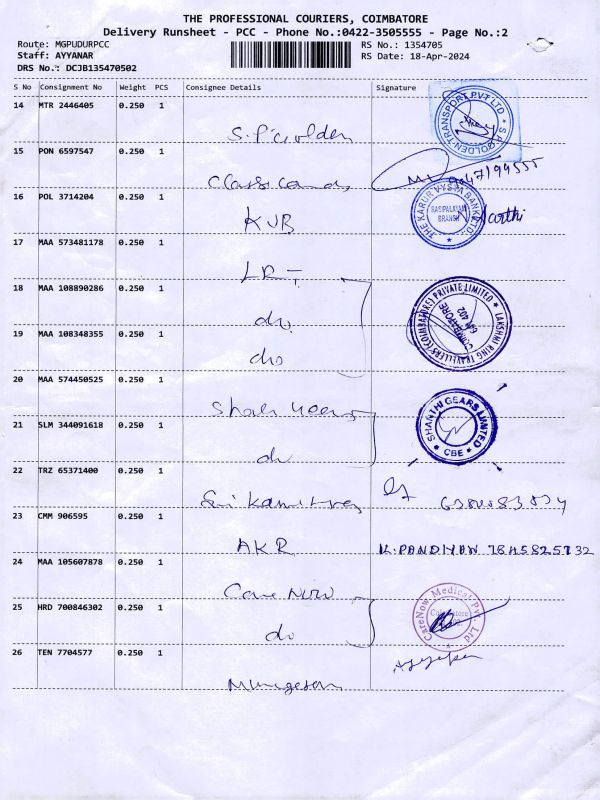 THE PROFESSIONAL COURIERS, COIMBATORE
Delivery Runsheet - PCC - Phone No.:0422-3505555 - Page No.:2
Route: MGPUDURPCC
Staff: AYYANAR
DRS No.: DCJB135470502
RS No.: 1354705
RS Date: 18-Apr-2024
S No Consignment No Weight PCS Consignee Details Signature
14 MTR 2446405 0.250 1
S.P. Golden
S.P. GOLDEN TRANSPORT PVT LTD
15 PON 6597547 0.250 1
16 POL 3714204 0.250 1
KVB
THE KARUR VYSYA BANK LTD.
BRANCH
17 MAA 573481178 0.250 1
LRT
18 MAA 108890286 0.250 1
do
LAKSHMI RING TRAVELLERS (COIMBATORE) PRIVATE LIMITED
COIMBATORE
641 402
19 MAA 108348355 0.250 1
do
20 MAA 574450525 0.250 1
21 SLM 344091618 0.250 1
do
SHANTHI GEARS LIMITED
CBE
22 TRZ 65371400 0.250 1
23 CMM 906595 0.250 1
AKR
K.PANDIYAN 7845825732
24 MAA 105607878 0.250 1
Care Now
25 HRD 700846302 0.250 1
do
CareNow Medical Pvt Ltd
26 TEN 7704577 0.250 1
Murugesan